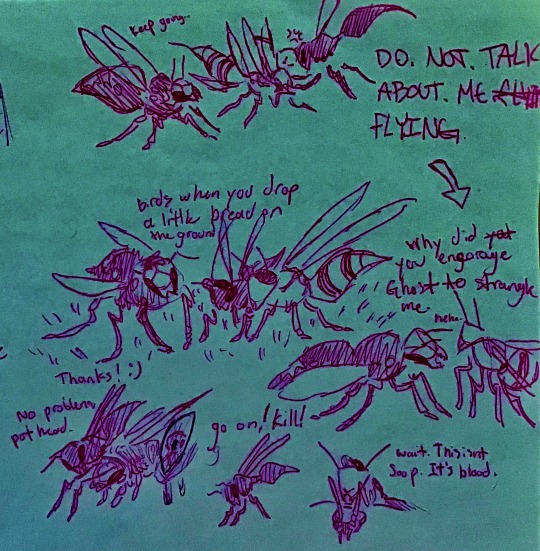 keep going..
DO. NOT. TALK
ABOUT. ME
FLYING.
birds when you drop
a little bread on
the ground
why did
you engorage
Ghost to strangle
me
hehe.
Thanks! :)
No problem,
pot head.
go on, kill!
wait. This isnt
Soop. It's blood.